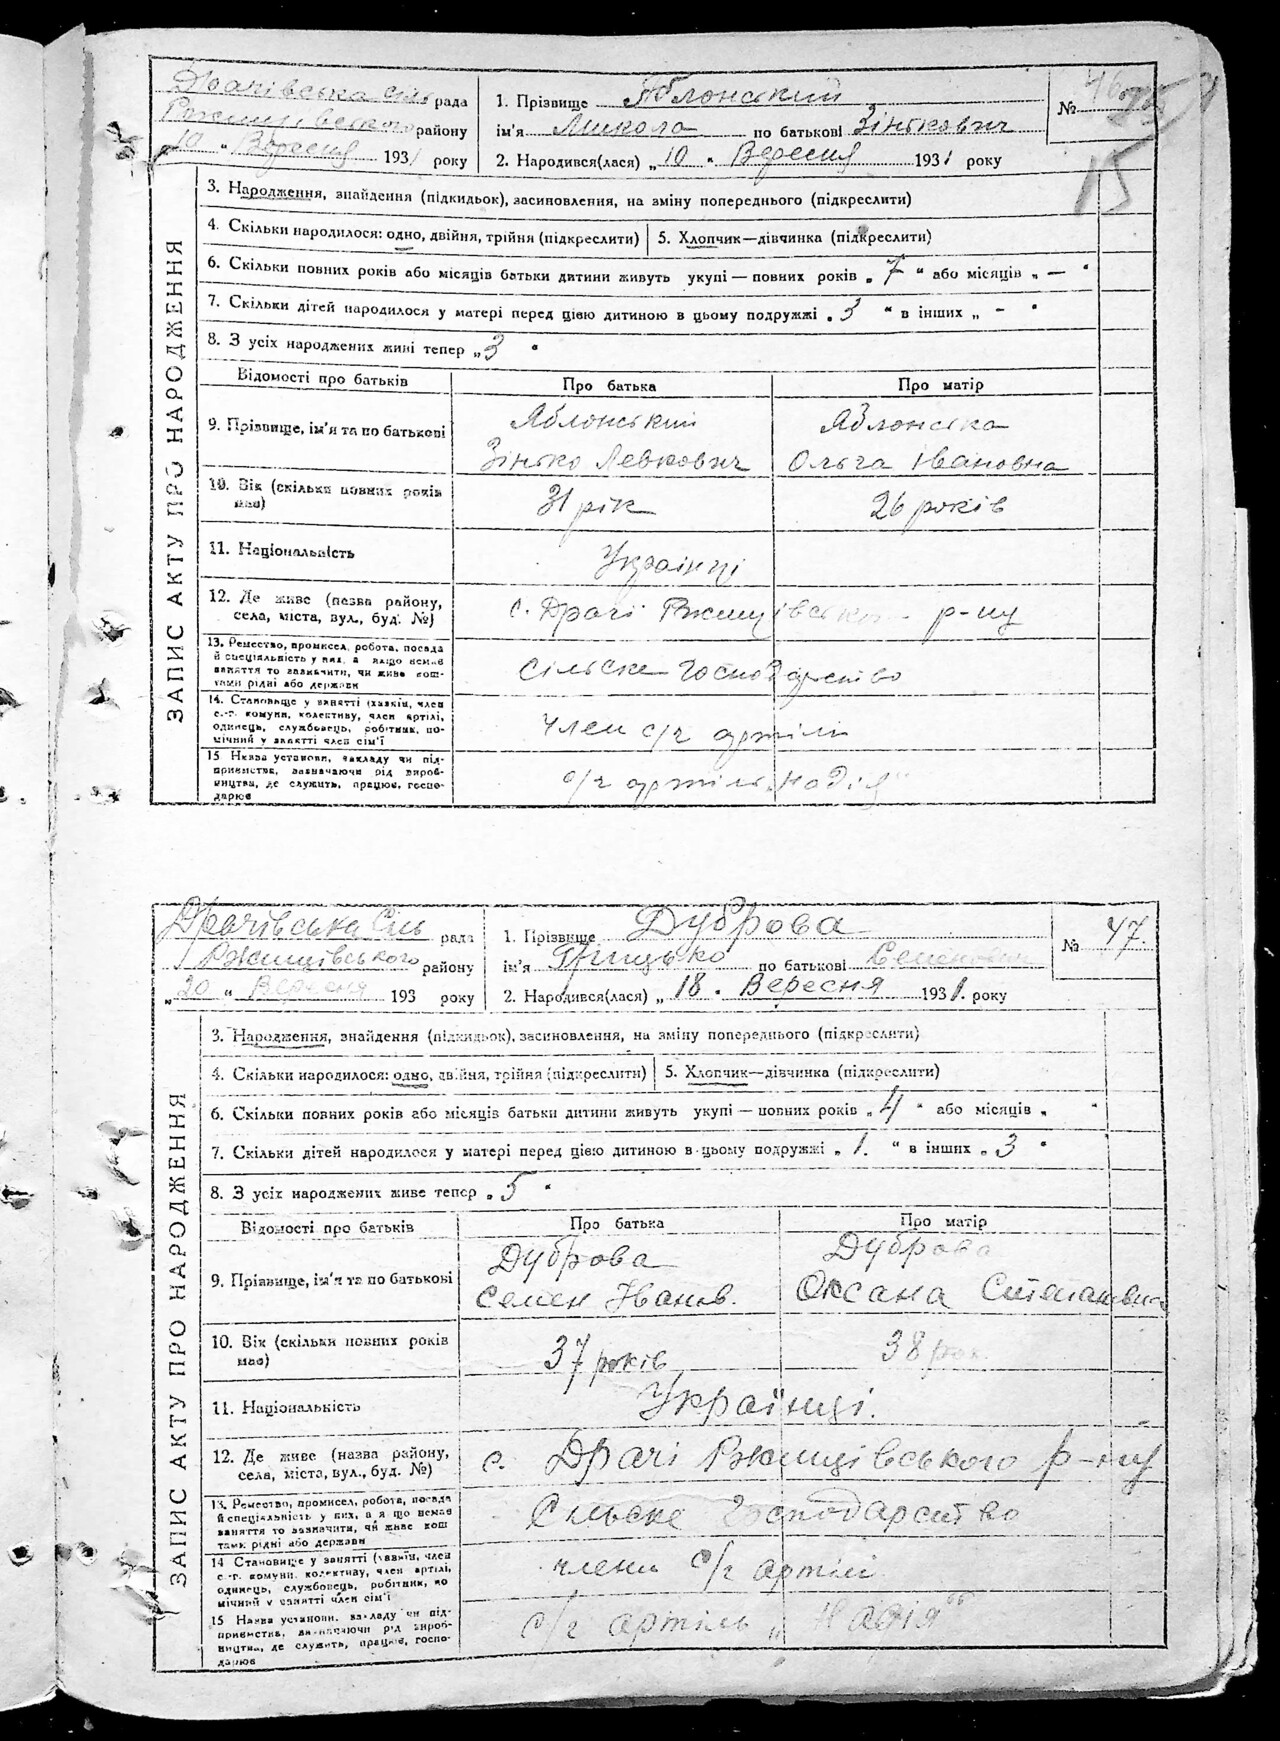 Драчівська сіль рада
Ржищівського району
"10" Вересня 1931 року
1. Прізвище Яблонський
ім'я Микола по батькові Зінькович
2. Народився(лася) „10" Вересня 1931 року
№ 46
15
ЗАПИС АКТУ ПРО НАРОДЖЕННЯ
3. Народження, знайдення (підкидьок), засиновлення, на зміну попереднього (підкреслити)
4. Скільки народилося: одно, двійня, трійня (підкреслити) 5. Хлопчик—дівчинка (підкреслити)
6. Скільки повних років або місяців батьки дитини живуть укупі — повних років „7" або місяців „—"
7. Скільки дітей народилося у матері перед цією дитиною в цьому подружжі „3" в інших „-"
8. З усіх народжених живі тепер „3"
Відомості про батьків Про батька Про матір
9. Прізвище, ім'я та по батькові
Яблонський
Зінько Левкович
Яблонська
Ольга Івановна
10. Вік (скільки повних років
має)
31 рік 26 років
11. Національність Українці
12. Де живе (назва району,
села, міста, вул., буд. №)
с. Драчі Ржищівського р-ну
13. Ремество, промисел, робота, посада
й спеціяльність у них, а якщо немає
заняття то зазначити, чи живе кош-
тами рідні або держави
сільске господарство
14. Становище у занятті (хазяїн, член
с.-г. комуни, колективу, член артілі,
одинець, службовець, робітник, по-
мічний у занятті член сім'ї
член с/г артіли
15 Назва установи, закладу чи під-
приємства, зазначаючи рід вироб-
ництва, де служить, працює, госпо-
дарює
с/г артіль „Надія"
Драчівська Сіль рада
Ржищівського району
„20" Вересня 193 року
1. Прізвище Дуброва
ім'я Грицько по батькові Семенович
2. Народився(лася) „18" Вересня 1931. року
№ 47.
ЗАПИС АКТУ ПРО НАРОДЖЕННЯ
3. Народження, знайдення (підкидьок), засиновлення, на зміну попереднього (підкреслити)
4. Скільки народилося: одно, двійня, трійня (підкреслити) 5. Хлопчик—дівчинка (підкреслити)
6. Скільки повних років або місяців батьки дитини живуть укупі — повних років „4" або місяців „ "
7. Скільки дітей народилося у матері перед цією дитиною в цьому подружжі „1." в інших „3"
8. З усіх народжених живе тепер „5"
Відомості про батьків Про батька Про матір
9. Прізвище, ім'я та по батькові
Дуброва
Семен Іванов.
Дуброва
Оксана Степановна
10. Вік (скільки повних років
має)
37 років 38 рок.
11. Національність Українці.
12. Де живе (назва району,
села, міста, вул., буд. №)
с. Драчі Ржищівського р-ну
13. Ремество, промисел, робота, посада
й спеціяльність у них, а якщо немає
заняття то зазначити, чи живе кош
тами рідні або держави
Сільске Господарство
14 Становище у занятті (хазяїн, член
с.-г. комуни, колективу, член артілі,
одинець, службовець, робітник, по
мічний у занятті член сім'ї
члени с/г артілі
15 Назва установи, закладу чи під-
приємства, зазначаючи рід вироб-
ництва, де служить, працює, госпо-
дарює
с/г артіль „Надія"